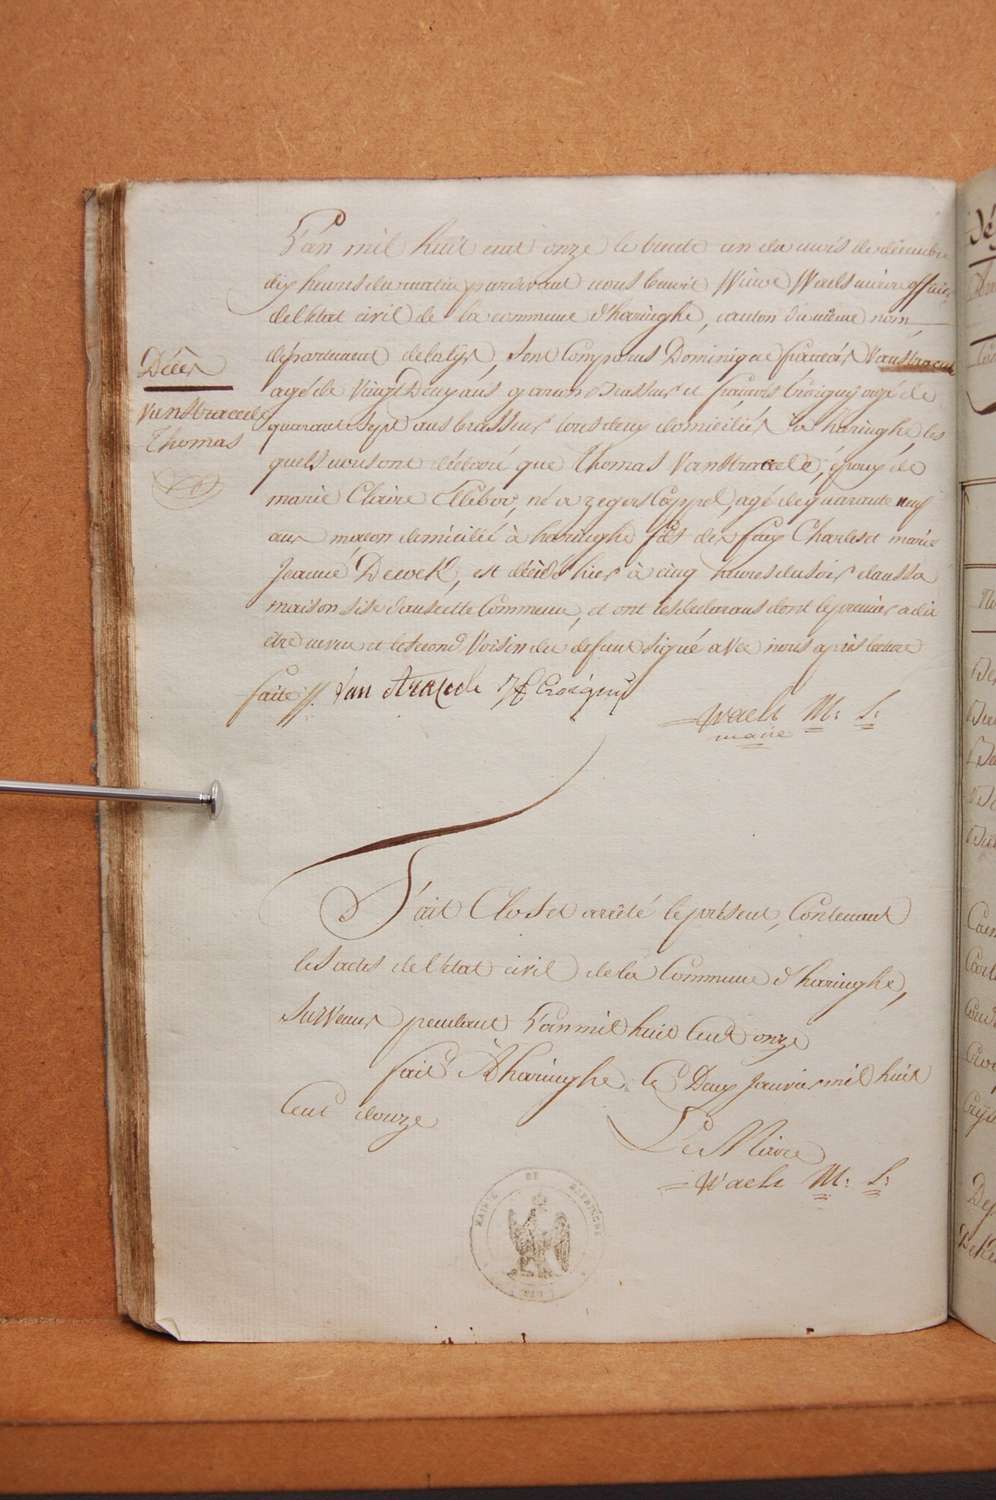 L'an mil huit cent onze le trente un du mois de décembre
dix heures du matin pardevant nous benoit Winoc Waels maire officier
de l'état civil de la commune d'haringhe, canton du même nom,
département de la lys, sont Comparus Dominique francois Vanstraceele
agé de Vingt Deux ans garcon brasseur et francois Croigny agé de
quarante sept ans brasseur tous deux domiciliés à haringhe, les
quels nous ont déclaré que Thomas Vanstraceele, époux de
marie Claire Ellebor, né a zegers Cappel, agé de quarante neuf
ans macon domicilié à haringhe fils de feux Charles et marie
Jeanne Dewek, est décédé hier à cinq heures du soir dans sa
maison sise dans cette Commune, et ont les declarans dont le premier a dit
être neveu et le second Voisin du defunt signé avec nous après lecture
faite ff. Van Straceele f Croigny
Waels M: S:
maire
Décès
Vanstraceele
Thomas
fait Clos et arrêté le présent, Contenant
les actes de l'état civil de la Commune d'haringhe,
survenus pendant l'an mil huit Cent onze
fait A haringhe le Deux Janvier mil huit
Cent douze
Le Maire
Waels M: S:
MAIRIE DE HARINGHE